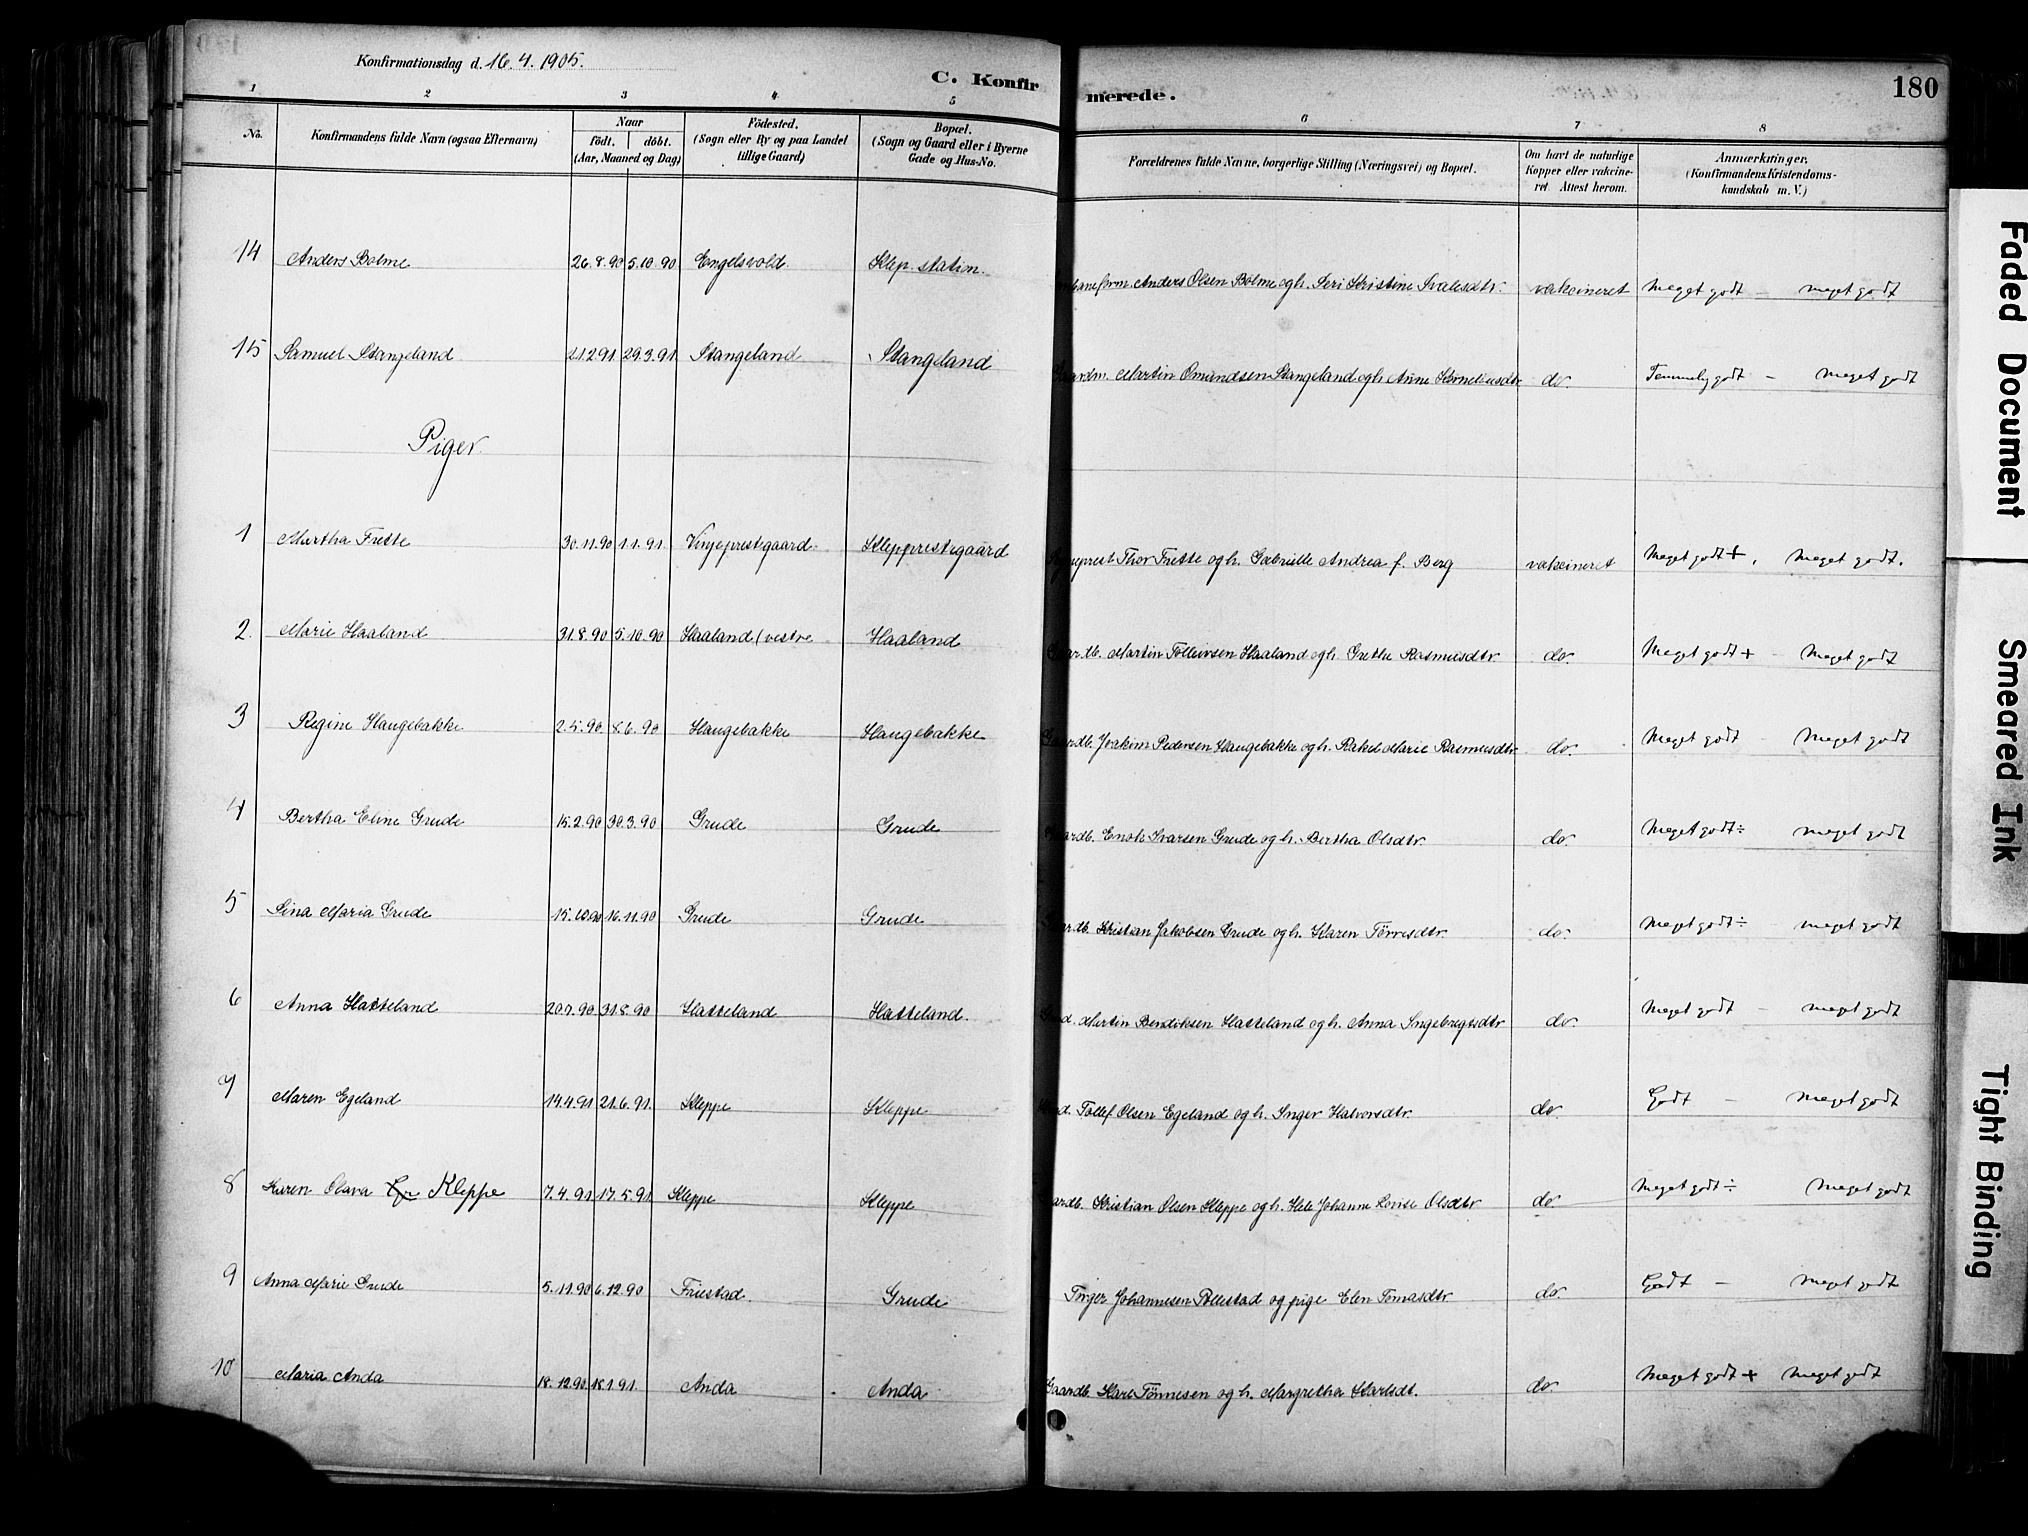 Konfirmationsdag d. 16.4.1905.
C. Konfirmerede.
180
1 2 3 4 5 6 7 8
No. Konfirmandens fulde Navn (ogsaa Efternavn) Naar födt. döbt. (Aar, Maaned og Dag) Födested. (Sogn eller By og paa Landet tillige Gaard) Bopæl. (Sogn og Gaard eller i Byerne Gade og Hus-No. Forældrenes fulde Navne, borgerlige Stilling (Næringsvei) og Bopæl. Om havt de naturlige Kopper eller vakcineret. Attest herom. Anmærkninger. (Konfirmandens Kristendomskundskab m. V.)
14 Anders Bolme 26.8.90 5.10.90 Engelsvold Klep station. Anders Olsen Bolme og h. Seri Kristine Svalesdtr. vakcineret Meget godt – meget godt
15 Samuel Stangeland 21.2.91 29.3.91. Stangeland Stangeland Gaardm. Martin Omundsen Stangeland og h. Anne Korneliusdtr do. Temmelig godt – meget godt
Piger.
1 Martha Frette 30.11.90 1.1.91. Vinjeprestgaard Klepprestegaard Sogneprest Thor Frette og h. Gabrielle Andrea f. Berg vakcineret Meget godt +, meget godt.
2. Marie Haaland 31.8.90 5.10.90 Haaland (vestre Haaland Gaardb. Martin Tollevsen Haaland og h. Grethe Rasmusdtr do. Meget godt + meget godt
3 Regine Haugebakke 2.5.90 8.6.90 Haugebakke Haugebakke Gaardb. Joakim Pedersen Haugebakke og h. Rakel Marie Rasmusdtr do. Meget godt – Meget godt
4 Bertha Eline Grude 15.2.90 30.3.90 Grude Grude Gaardb. Enok Ivarsen Grude og h. Bertha Olsdtr. do. Meget godt ÷ meget godt
5 Sina Maria Grude 15.10.90 16.11.90 Grude Grude Gaardb. Kristian Jakobsen Grude og h. Karen Törresdtr. do. Meget godt ÷ meget godt
6 Anna Hatteland 20.7.90 31.8.90 Hatteland Hatteland. Martin Bendiksen Hatteland og h. Anna Ingebregtsdtr do. Meget godt – meget godt
7 Maren Egeland 14.4.91 21.6.91. Kleppe Kleppe Tollef Olsen Egeland og h. Inger Halvorsdtr. do. Godt – meget godt
8 Karen Olava Kleppe 7.4.91 17.5.91 Kleppe Kleppe Gaardb. Kristian Olsen Kleppe og h. Hele Johanne Lovise Olsdtr do. Meget godt ÷ meget godt
9 Anna Marie Grude 5.11.90 6.12.90 Friestad. Grude Johannesen Pollestad og pige Elen Tomasdtr do. Godt – meget godt
10 Maria Anda 18.12.90 18.1.91. Anda Anda Gaardb. Karl Tönnesen og h. Margretha Karlsdt. do. Meget godt + meget godt
Faded Document
Smeared Ink
Tight Binding